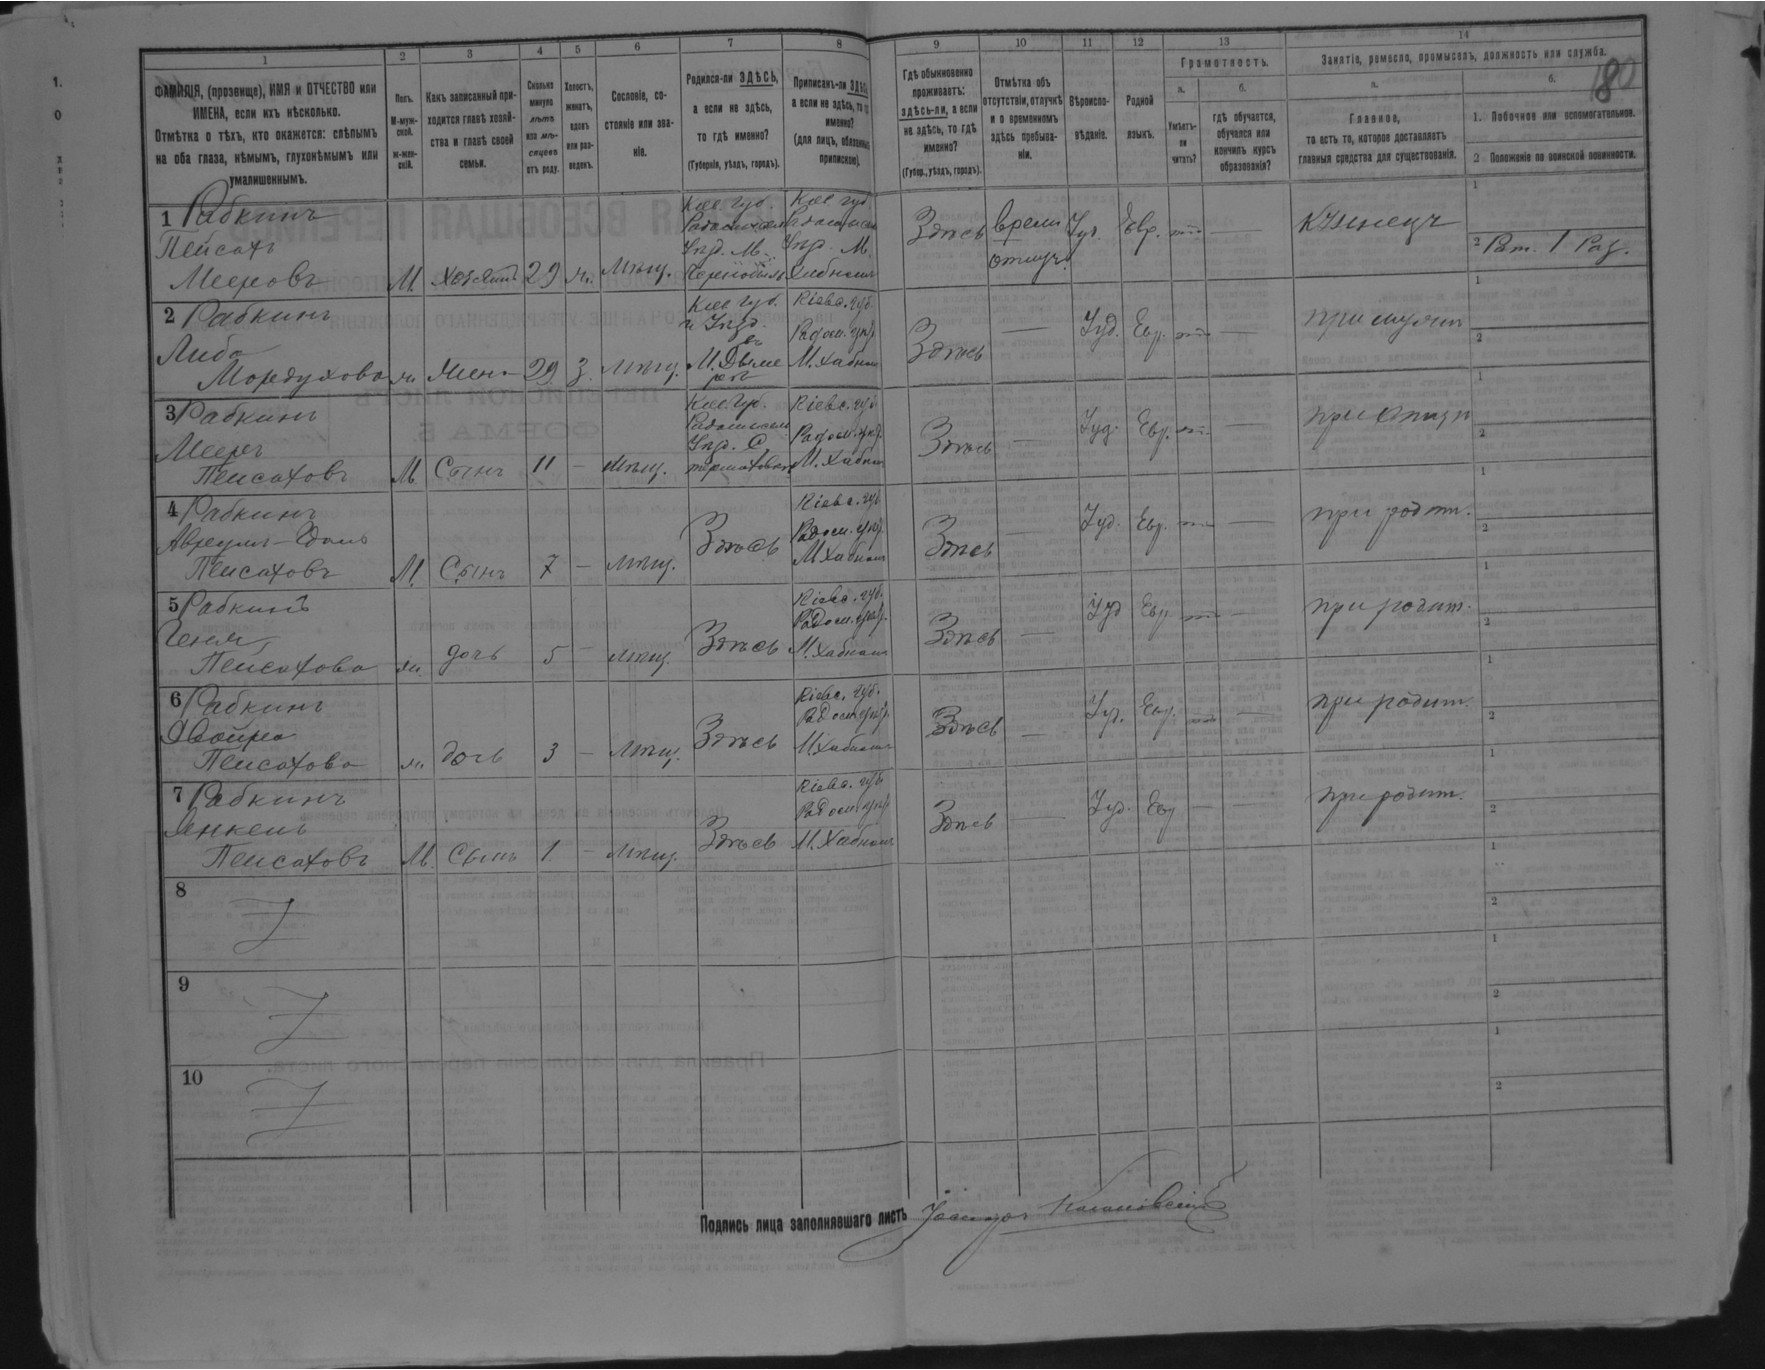 180
1 2 3 4 5 6 7 8 9 10 11 12 13 14
ФАМИЛІЯ, (прозвище), ИМЯ и ОТЧЕСТВО или
ИМЕНА, если ихъ нѣсколько.
Отмѣтка о тѣхъ, кто окажется: слѣпымъ
на оба глаза, нѣмымъ, глухонѣмымъ или
умалишеннымъ.
Полъ.
М-муж-
ской.
ж-жен-
скій.
Какъ записанный при-
ходится главѣ хозяй-
ства и главѣ своей
семьи.
Сколько
минуло
лѣтъ
или мѣ-
сяцевъ
отъ роду.
Холостъ,
женатъ,
вдовъ
или раз-
веденъ.
Сословіе, со-
стояніе или зва-
ніе.
Родился-ли ЗДѢСЬ,
а если не здѣсь,
то гдѣ именно?
(Губернія, уѣздъ, городъ).
Приписанъ-ли ЗДѢСЬ,
а если не здѣсь, то гдѣ
именно?
(для лицъ, обязанныхъ
припискою).
Гдѣ обыкновенно
проживаетъ:
здѣсь-ли, а если
не здѣсь, то гдѣ
именно?
(Губер., уѣздъ, городъ).
Отмѣтка объ
отсутствіи, отлучкѣ
и о временномъ
здѣсь пребыва-
ніи.
Вѣроиспо-
вѣданіе.
Родной
языкъ.
Грамотность.
а.
Умѣетъ-
ли
читать?
б.
гдѣ обучается,
обучался или
кончилъ курсъ
образованія?
Занятіе, ремесло, промыселъ, должность или служба.
а.
Главное,
то есть то, которое доставляетъ
главныя средства для существованія.
б.
1. Побочное или вспомогательное.
2 Положеніе по воинской повинности.
1 Рабкинъ
Пейсахъ
Мееровъ М Хозяинъ 29 ж. Мѣщ.
Кіев губ.
Радомысл
Уѣзд. М.
Чернобыль
Кіев губ
Радомысл
Уѣзд. М.
Хабное
Здѣсь
времен
отлуч.
Іуд. Евр. — кузнецъ
1
2 Рат. 1 Раз.
2 Рабкинъ
Либа
Мордухова ж. жена 29 З. мѣщ.
Кіев губ.
и Уѣзд.
М. Дыме
ръ
Кіевс. губ.
Радом. уѣзд.
М. Хабное
Здѣсь — Іуд. Евр. при мужѣ
1
2
3 Рабкинъ
Мееръ
Пейсаховъ М. Сынъ 11 — мѣщ.
Кіев губ.
Радомысл
Уѣзд. С.
Кіевс. губ
Радом. уѣзд.
М. Хабное
Здѣсь — Іуд. Евр. — при отцѣ
1
2
4 Рабкинъ
Пейсаховъ М. Сынъ 7 — мѣщ.
Здѣсь
Кіевс. губ.
Радом. уѣзд.
М Хабное
Здѣсь — Іуд. Евр. — при родит.
1
2
5 Рабкинъ
Геня
Пейсахова ж. дочь 5 — мѣщ.
Здѣсь
Кіевс. губ.
Радом. уѣзд.
М. Хабное
Здѣсь — Іуд Евр. — при родит.
1
2
6 Рабкинъ
Двойра
Пейсахова ж. дочь 3 — мѣщ.
Здѣсь
Кіевс. губ.
Радом уѣзд.
М. Хабное
Здѣсь — Іуд. Евр. — при родит.
1
2
7 Рабкинъ
Янкель
Пейсаховъ М. Сынъ 1 — мѣщ.
Здѣсь
Кіевс. губ
Радом уѣзд
М. Хабное
Здѣсь — Іуд. Евр — при родит.
1
2
8
1
2
9
1
2
10
1
2
Подпись лица заполнявшаго листъ